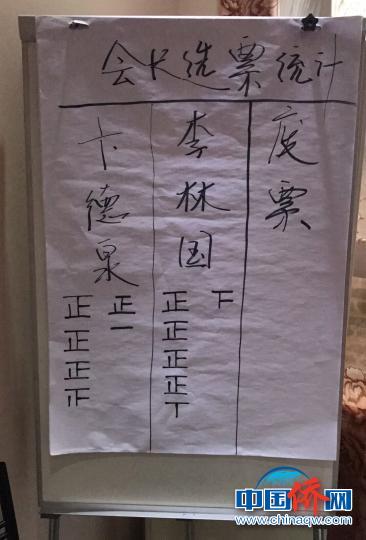 会长选票统计
卞德泉
正正正正
正一
李林国
正正正正丅
下
废票
中国侨网
www.chinaqw.com